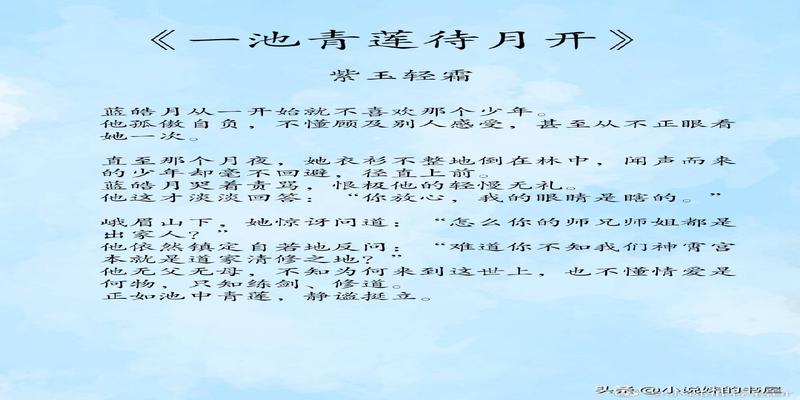 《一池青莲待月开》
紫玉轻霜
蓝皓月从一开始就不喜欢那个少年。
他孤傲自负，不懂顾及别人感受，甚至从不正眼看
她一次。
直至那个月夜，她衣衫不整地倒在林中，闻声而来
的少年却毫不回避，径直上前。
蓝皓月哭着责骂，恨极他的轻慢无礼。
他这才淡淡回答：“你放心，我的眼睛是瞎的。”
峨眉山下，她惊讶问道：“怎么你的师兄师姐都是
出家人？”
他依然镇定自若地反问：“难道你不知我们神霄宫
本就是道家清修之地？”
他无父无母，不知为何来到这世上，也不懂情爱是
何物，只知练剑、修道。
正如池中青莲，静谧挺立。
头条 @小说妹的书屋